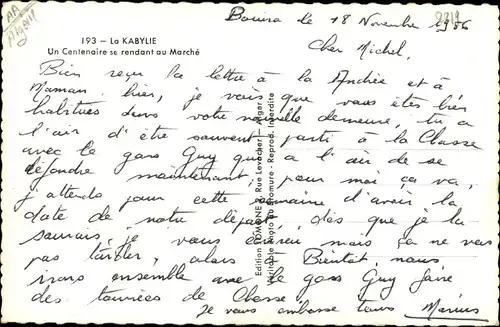 AA
Algérie
193 — La KABYLIE
Un Centenaire se rendant au Marché
Bouira le 18 Novembre 1956
Cher Michel,
Bien reçu la lettre à la Andrée et à
Maman hier, je vois que vous êtes très
habitués dans votre nouvelle demeure, tu a
l'air d'être souvent parti à la Chasse
avec le gars Guy qui a l'air de se
défendre maintenant, pour moi ça va,
j'attends pour cette semaine d'avoir la
date de notre départ, dès que je la
saurais, je vous mais ça ne vas
pas tarder, alors Bientôt nous
irons ensemble avec le gars Guy faire
des tournées de Chasse.
Je vous embrasse tous Marius
Edition 6, Rue Levacher - Alger
Véritable Photo au Bromure - Reprod. Interdite